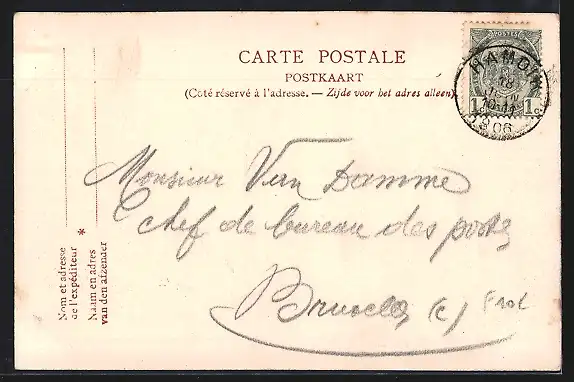 CARTE POSTALE
POSTKAART
(Côté réservé à l'adresse. — Zijde voor het adres alleen)
POSTES
1 1 c.
HAMOIR
1906
Monsieur Van Damme
Chef de bureau des postes
Bruxelles (c)
Nom et adresse
de l'expéditeur
*
Naam en adres
van den afzender